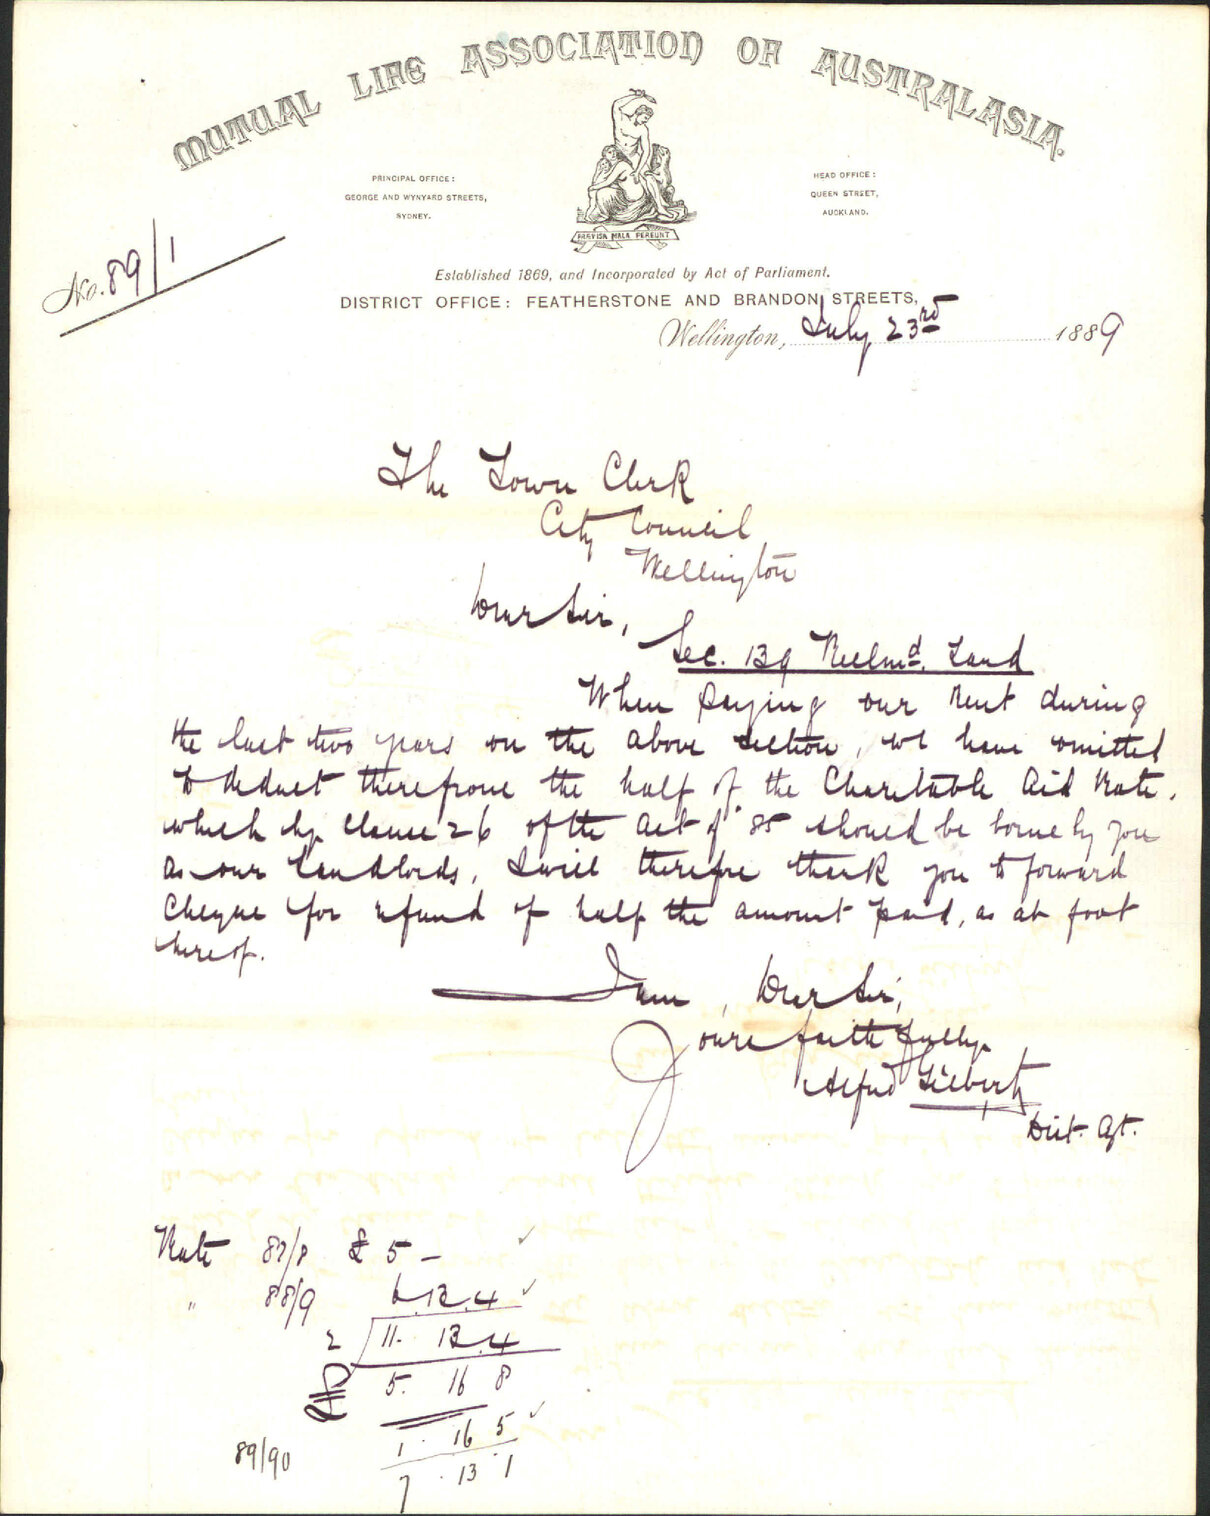 MUTUAL LIFE ASSOCIATION OF AUSTRALASIA.
PRINCIPAL OFFICE:
GEORGE AND WYNYARD STREETS,
SYDNEY.
HEAD OFFICE:
QUEEN STREET,
AUCKLAND.
PRAEVISA MALA PEREUNT
No. 89/1
Established 1869, and Incorporated by Act of Parliament.
DISTRICT OFFICE: FEATHERSTONE AND BRANDON STREETS,
Wellington, July 23rd 1889
The Town Clerk
City Council
Wellington
Dear Sir,
Sec. 139 Reclmd. Land
When paying our rent during
the last two years on the above section, we have omitted
to deduct therefrom the half of the Charitable Aid Rate,
which by Clause 26 of the Act of '85 should be borne by you
as our Landlords, I will therefore thank you to forward
Cheque for refund of half the amount paid, as at foot
hereof.
I am, Dear Sir,
Yours faithfully
Alfred Gilbert
Dist. Agt.
Rate 87/8 £ 5 –
" 88/9 6.13.4
2 11. 13.4
5. 16 8
1 . 16 5
89/90
7 . 13 . 1